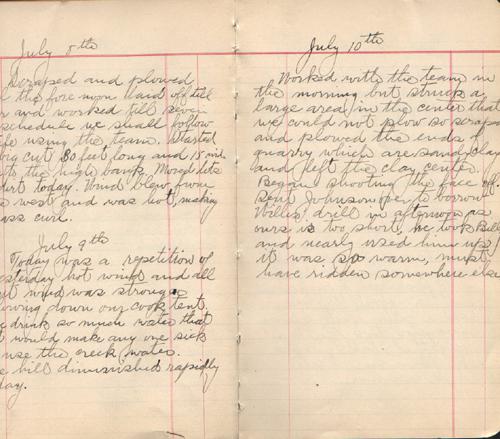 July 8th
Scraped and plowed
the fore noon laid off till
and worked till seven
schedule we shall follow
using the team. Started
big cut 80 feet long and 15 wide
to the high bank. Moved lots
dirt today. Wind blew from
west and was hot, making
grass curl.
July 9th
Today was a repetition of
yesterday hot winds and all
wind was strong
blowing down our cook tent.
drink so much water that
it would make any one sick
use the creek water.
hill diminished rapidly
today.
July 10th
Worked with the team in
the morning but struck a
large area in the center that
we could not plow so scraped
and plowed the ends of
quarry which are sandy clay
and left the clay center.
Began shooting the face off.
Sent Johnson over to borrow
Willis' drill in afternoon as
ours is too short, he took Bill
and nearly used him up,
it was so warm, must
have ridden somewhere else